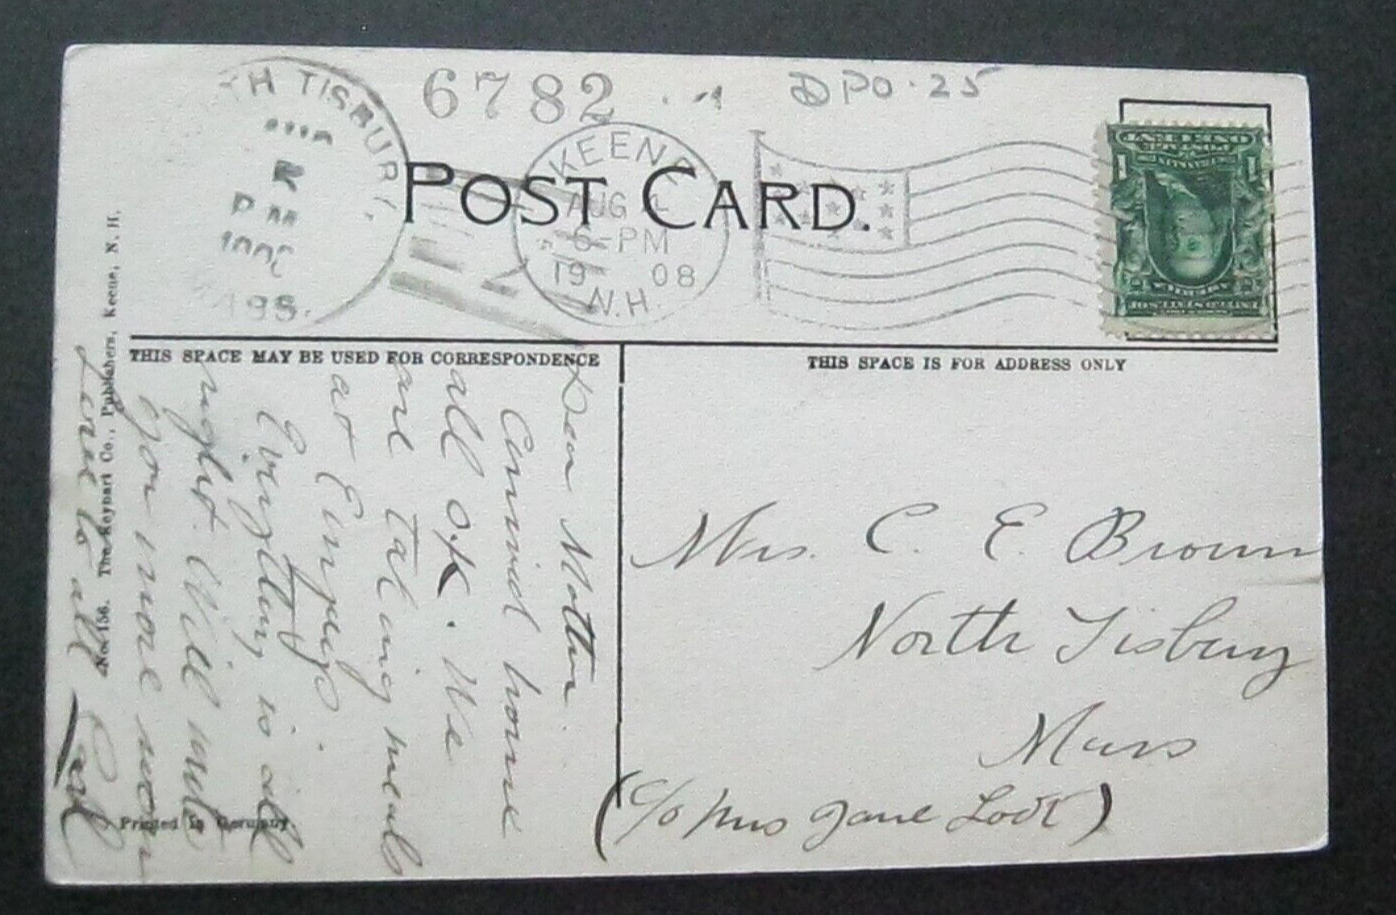 TH TISBURY,
AUG
5
PM
MASS.
6782
DPO.25
KEENE
AUG 4
6-PM
1908
N.H.
POST CARD.
THIS SPACE MAY BE USED FOR CORRESPONDENCE
THIS SPACE IS FOR ADDRESS ONLY
Dear Mother.
Arrived home
all O.K. We
are taking meals
at
Everything is all
right. Will write
you more soon
Love to all
Mrs. C. E. Brown
North Tisbury
Mass
(c/o Mrs Jane Look)
No. 156. The Keynart Co., Publishers, Keene, N. H.
Printed in Germany